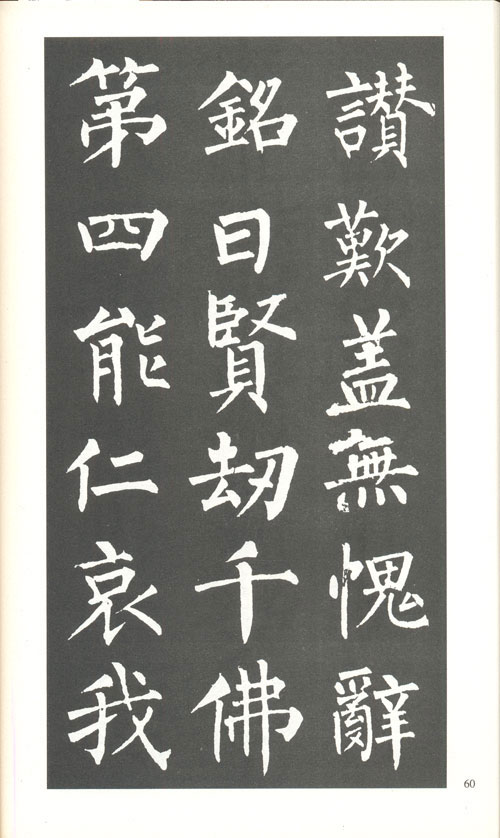 讃歎盖無愧辭
銘曰賢劫千佛
第四能仁哀我
60